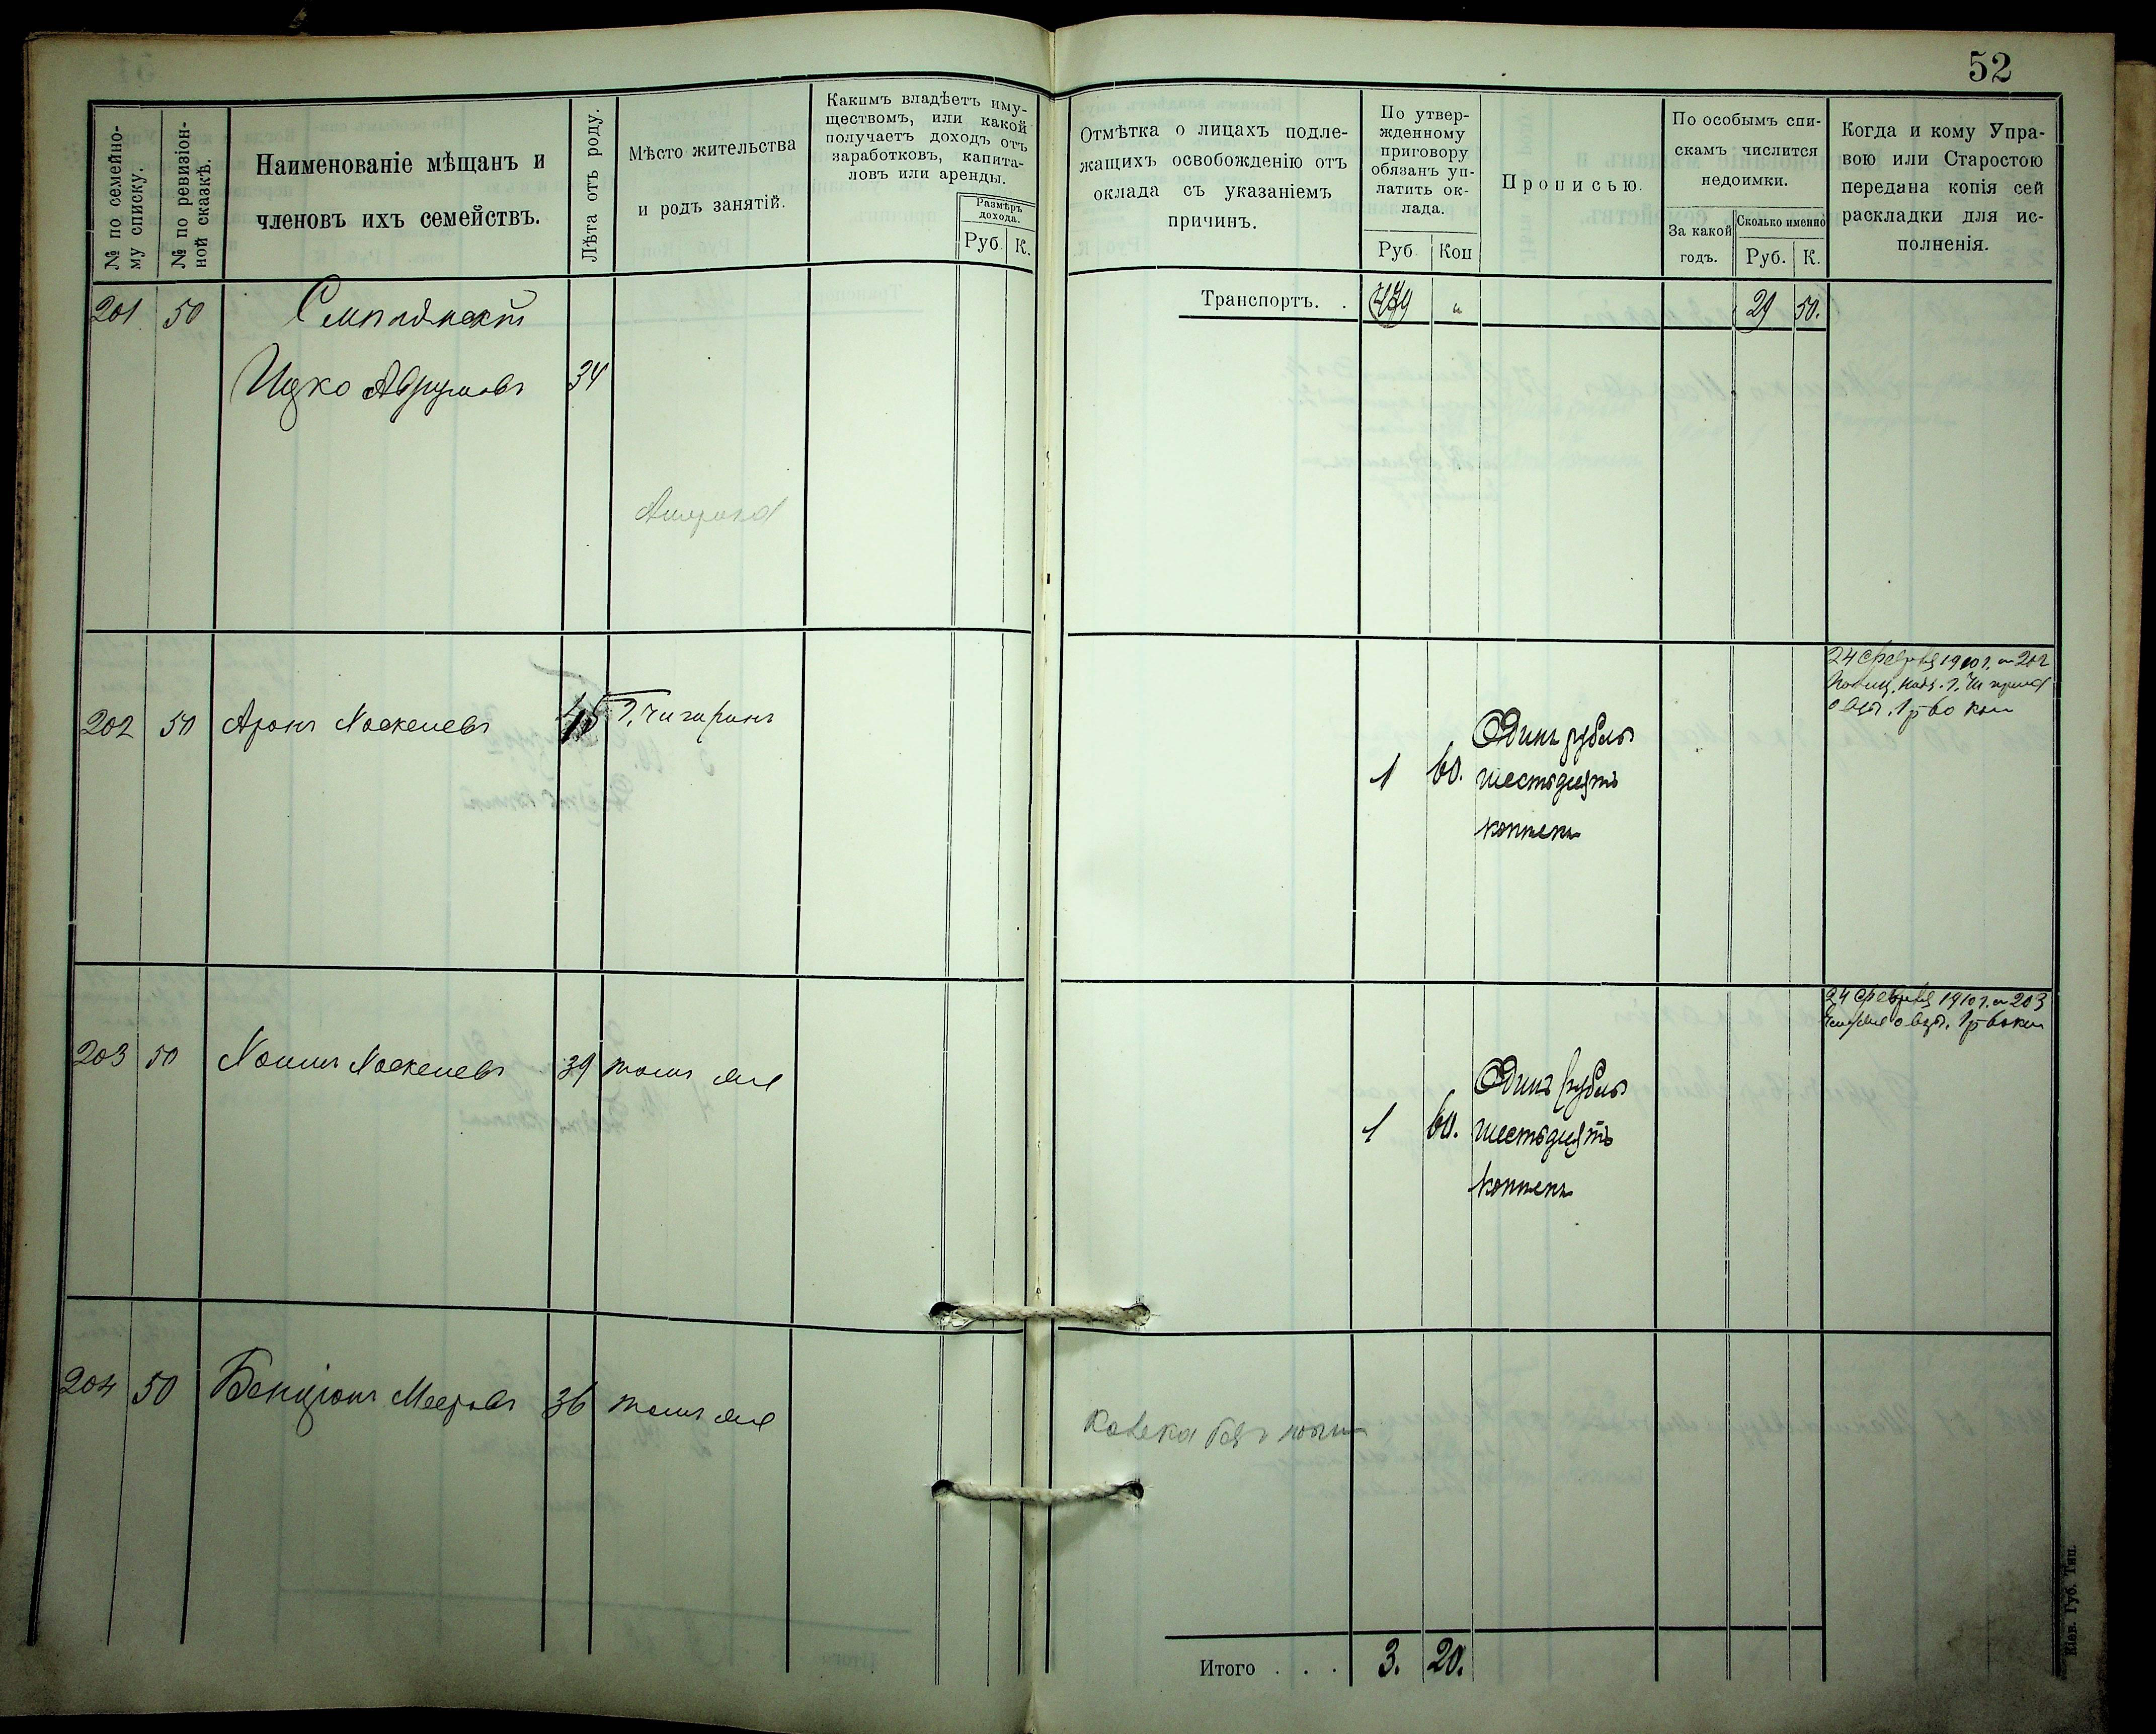 52
№ по семейно-
му списку.
№ по ревизіон-
ной сказкѣ.
Наименованіе мѣщанъ и
членовъ ихъ семействъ.
Лѣта отъ роду.
Мѣсто жительства
и родъ занятій.
Какимъ владѣетъ иму-
ществомъ, или какой
получаетъ доходъ отъ
заработковъ, капита-
ловъ или аренды.
Размѣръ
дохода.
Руб. К.
Отмѣтка о лицахъ подле-
жащихъ освобожденію отъ
оклада съ указаніемъ
причинъ.
По утвер-
жденному
приговору
обязанъ уп-
латить ок-
лада.
Руб. Коп
Прописью.
По особымъ спи-
скамъ числится
недоимки.
За какой
годъ.
Сколько именно
Руб. К.
Когда и кому Упра-
вою или Старостою
передана копія сей
раскладки для ис-
полненія.
201 50
Ицко Аврумовъ 34
Америка
Транспортъ. . 29 50.
202 50 Аронъ Хаскелевъ 45 г. Чигиринъ
1 60. Одинъ рубль
шестьдесятъ
копѣекъ
24 февраля 1910 г. № 202
1 р 60 коп
203 50 Хаимъ Хаскелевъ 39 тамъ же
1 60. Одинъ рубль
шестьдесятъ
копѣекъ
24 февраля 1910 г. № 203
1 р 60 коп
204 50 Бенціонъ Мееровъ 36 тамъ же
Калека безъ ноги
Итого . . . 3. 20.
Кіев. Губ. Тип.